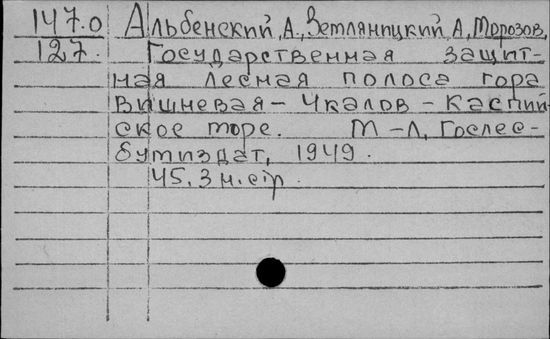 147.0 Альбенский, А., Земляницкий, А., Морозов,
127. Государственная защит-
ная лесная полоса гора
Вишневая - Чкалов - Каспий-
ское море. М-Л, Гослес-
бумиздат, 1949.
45.3 м. стр.